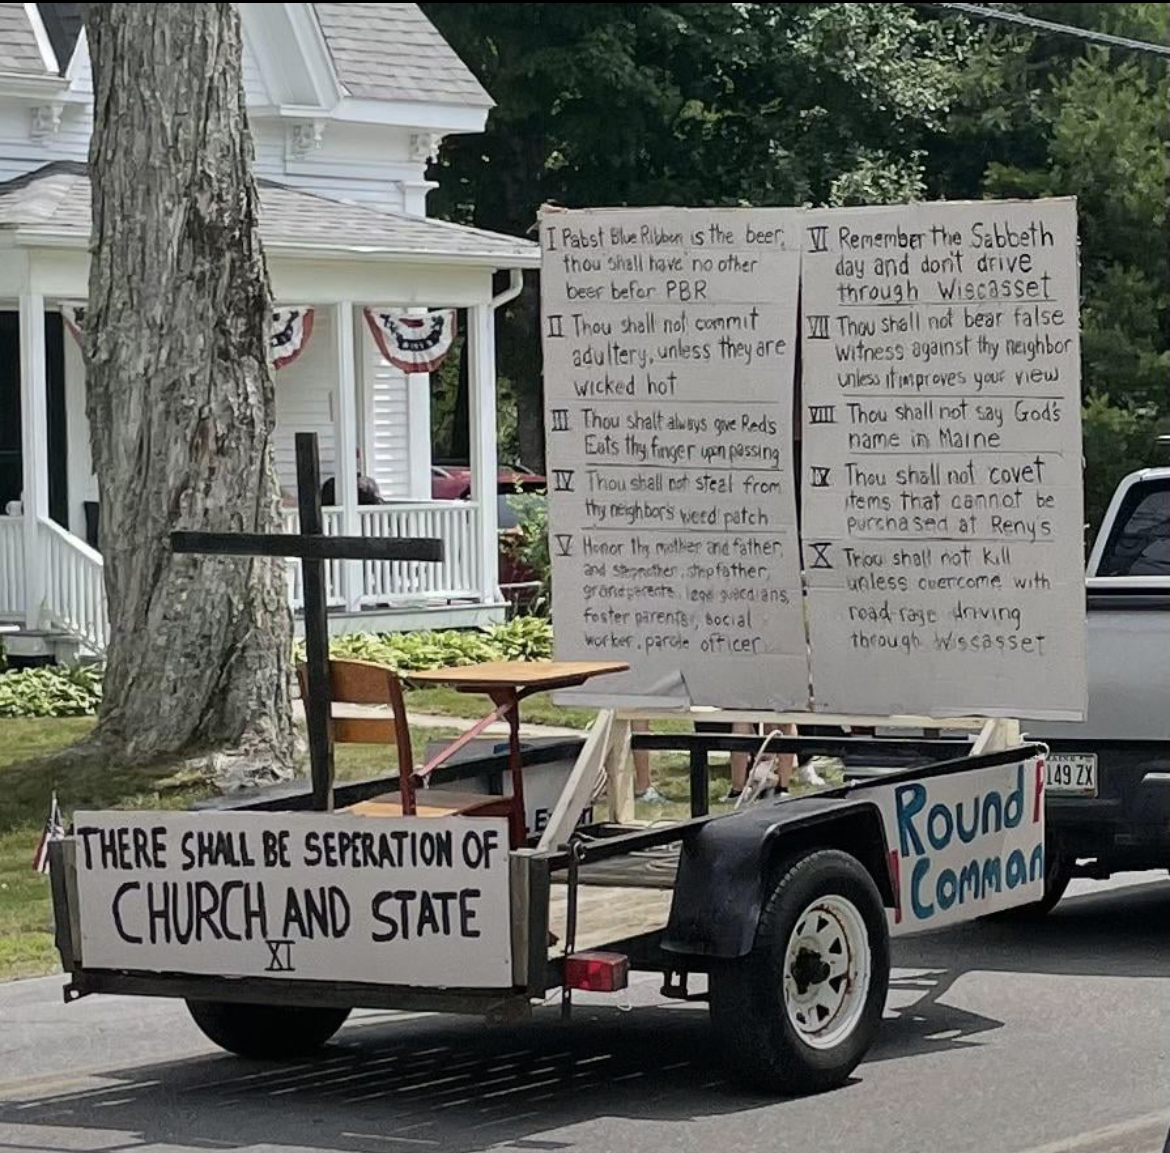 I Pabst Blue Ribbon is the beer,
thou shall have no other
beer befor PBR
II Thou shall not commit
adultery, unless they are
wicked hot
III Thou shalt always give Red's
Eats thy finger upon passing
IV Thou shall not steal from
thy neighbor's weed patch
V Honor thy mother and father,
and stepmother, stepfather,
grandparents, legal guardians,
foster parents, social
worker, parole officer
VI Remember the Sabbeth
day and don't drive
through Wiscasset
VII Thou shall not bear false
witness against thy neighbor
unless it improves your view
VIII Thou shall not say God's
name in Maine
IX Thou shall not covet
items that cannot be
purchased at Reny's
X Thou shall not kill
unless overcome with
road-rage driving
through Wiscasset
THERE SHALL BE SEPERATION OF
CHURCH AND STATE
XI
Round
Comman
149 ZX